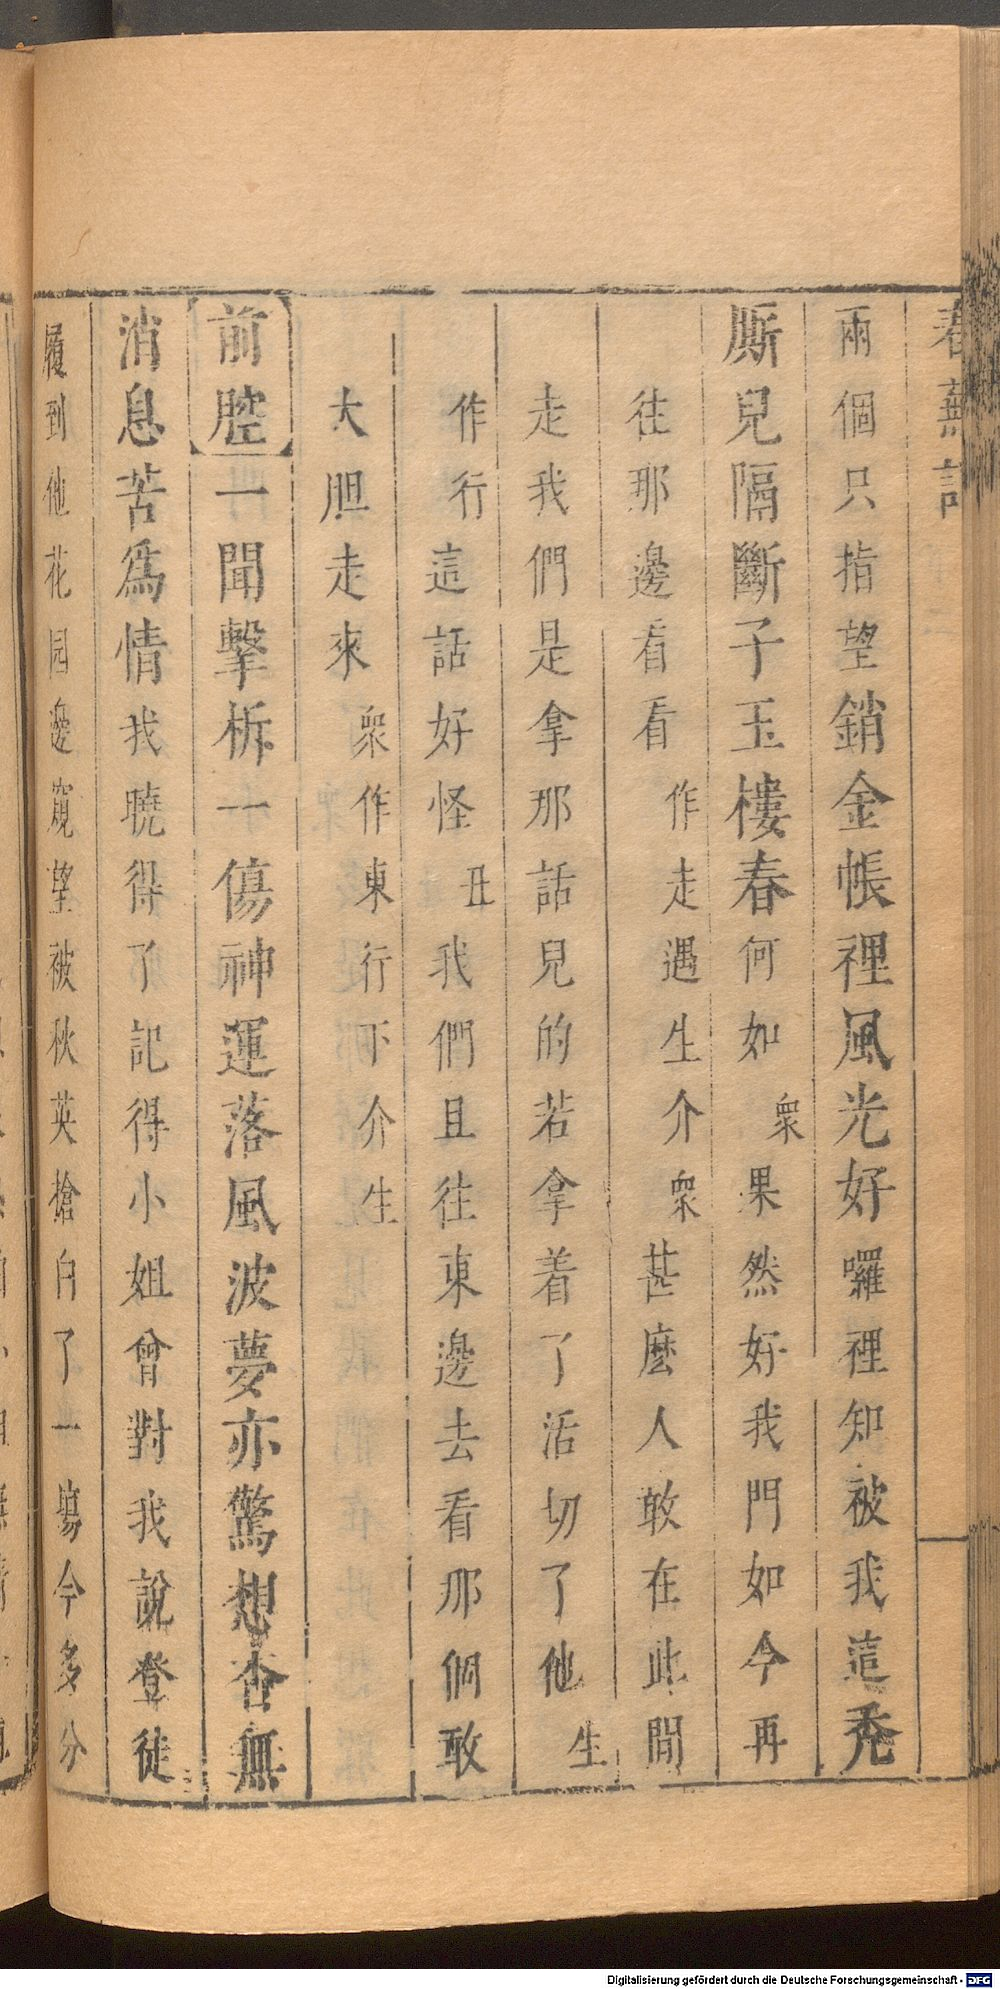 春蕪記
兩個只指望銷金帳裡風光好囉裡知被我這禿
厮兒隔斷子玉樓春何如衆果然好我門如今再
往那邊看看作走遇生介衆甚麽人敢在此間
走我們是拿那話兒的若拿着了活切了他生
作行這話好怪丑我們且往東邊去看那個敢
大胆走來衆作東行下介生
前腔一聞擊柝一傷神運落風波夢亦驚想杳無
消息苦爲情我曉得了記得小姐曾對我說登徒
履到他花园邊窺望被秋英搶白了一塲今多分
Digitalisierung gefördert durch die Deutsche Forschungsgemeinschaft - DFG